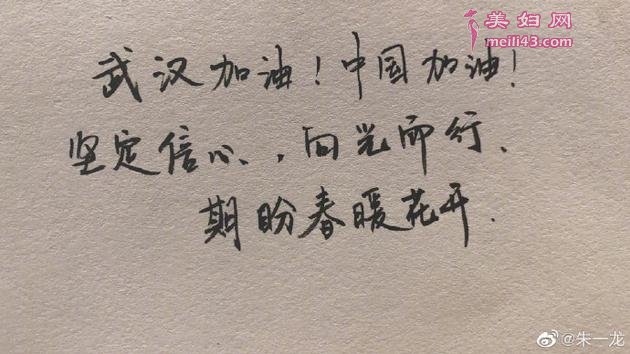 美妇网
meili43.com
武汉加油！中国加油！
坚定信心,向光而行、
期盼春暖花开.
@朱一龙